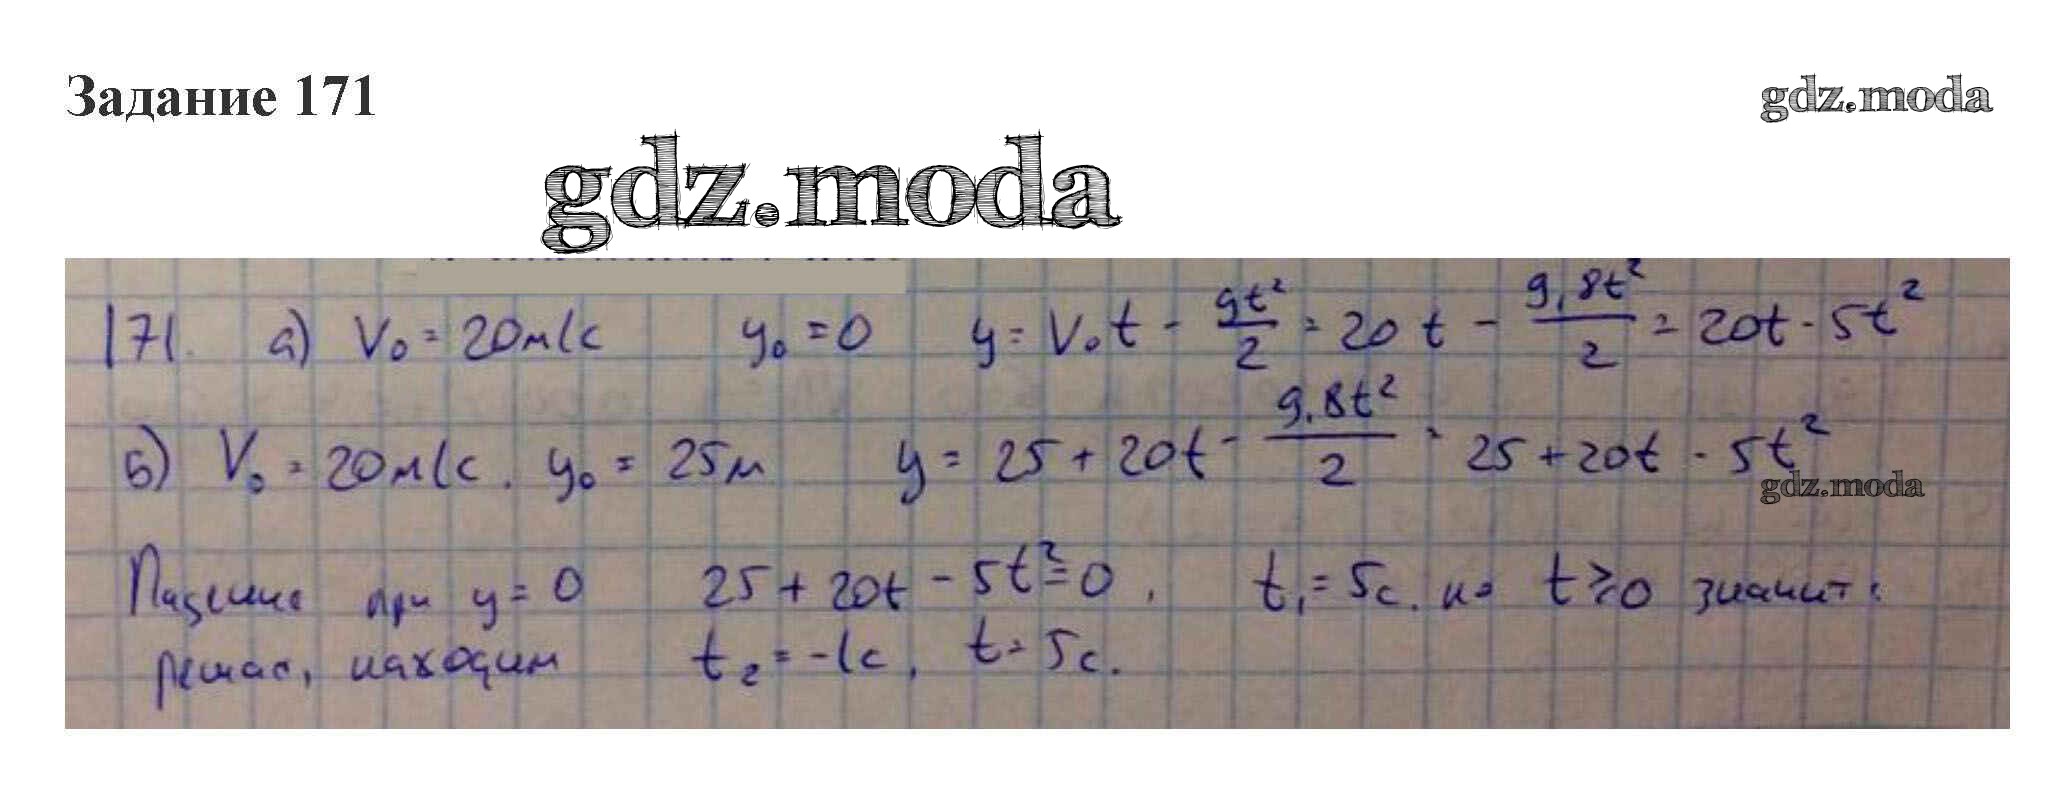 Задание 171
gdz.moda
gdz.moda
171. а) V₀ = 20м/с y₀ = 0 y = V₀t - gt²/2 = 20t - 9,8t²/2 = 20t - 5t²
б) V₀ = 20м/с. y₀ = 25м y = 25 + 20t - 9,8t²/2 = 25 + 20t - 5t²
gdz.moda
Падение при y = 0 25 + 20t - 5t² = 0, t₁ = 5с. но t ≥ 0 значит:
решая, находим t₂ = -1с, t = 5с.